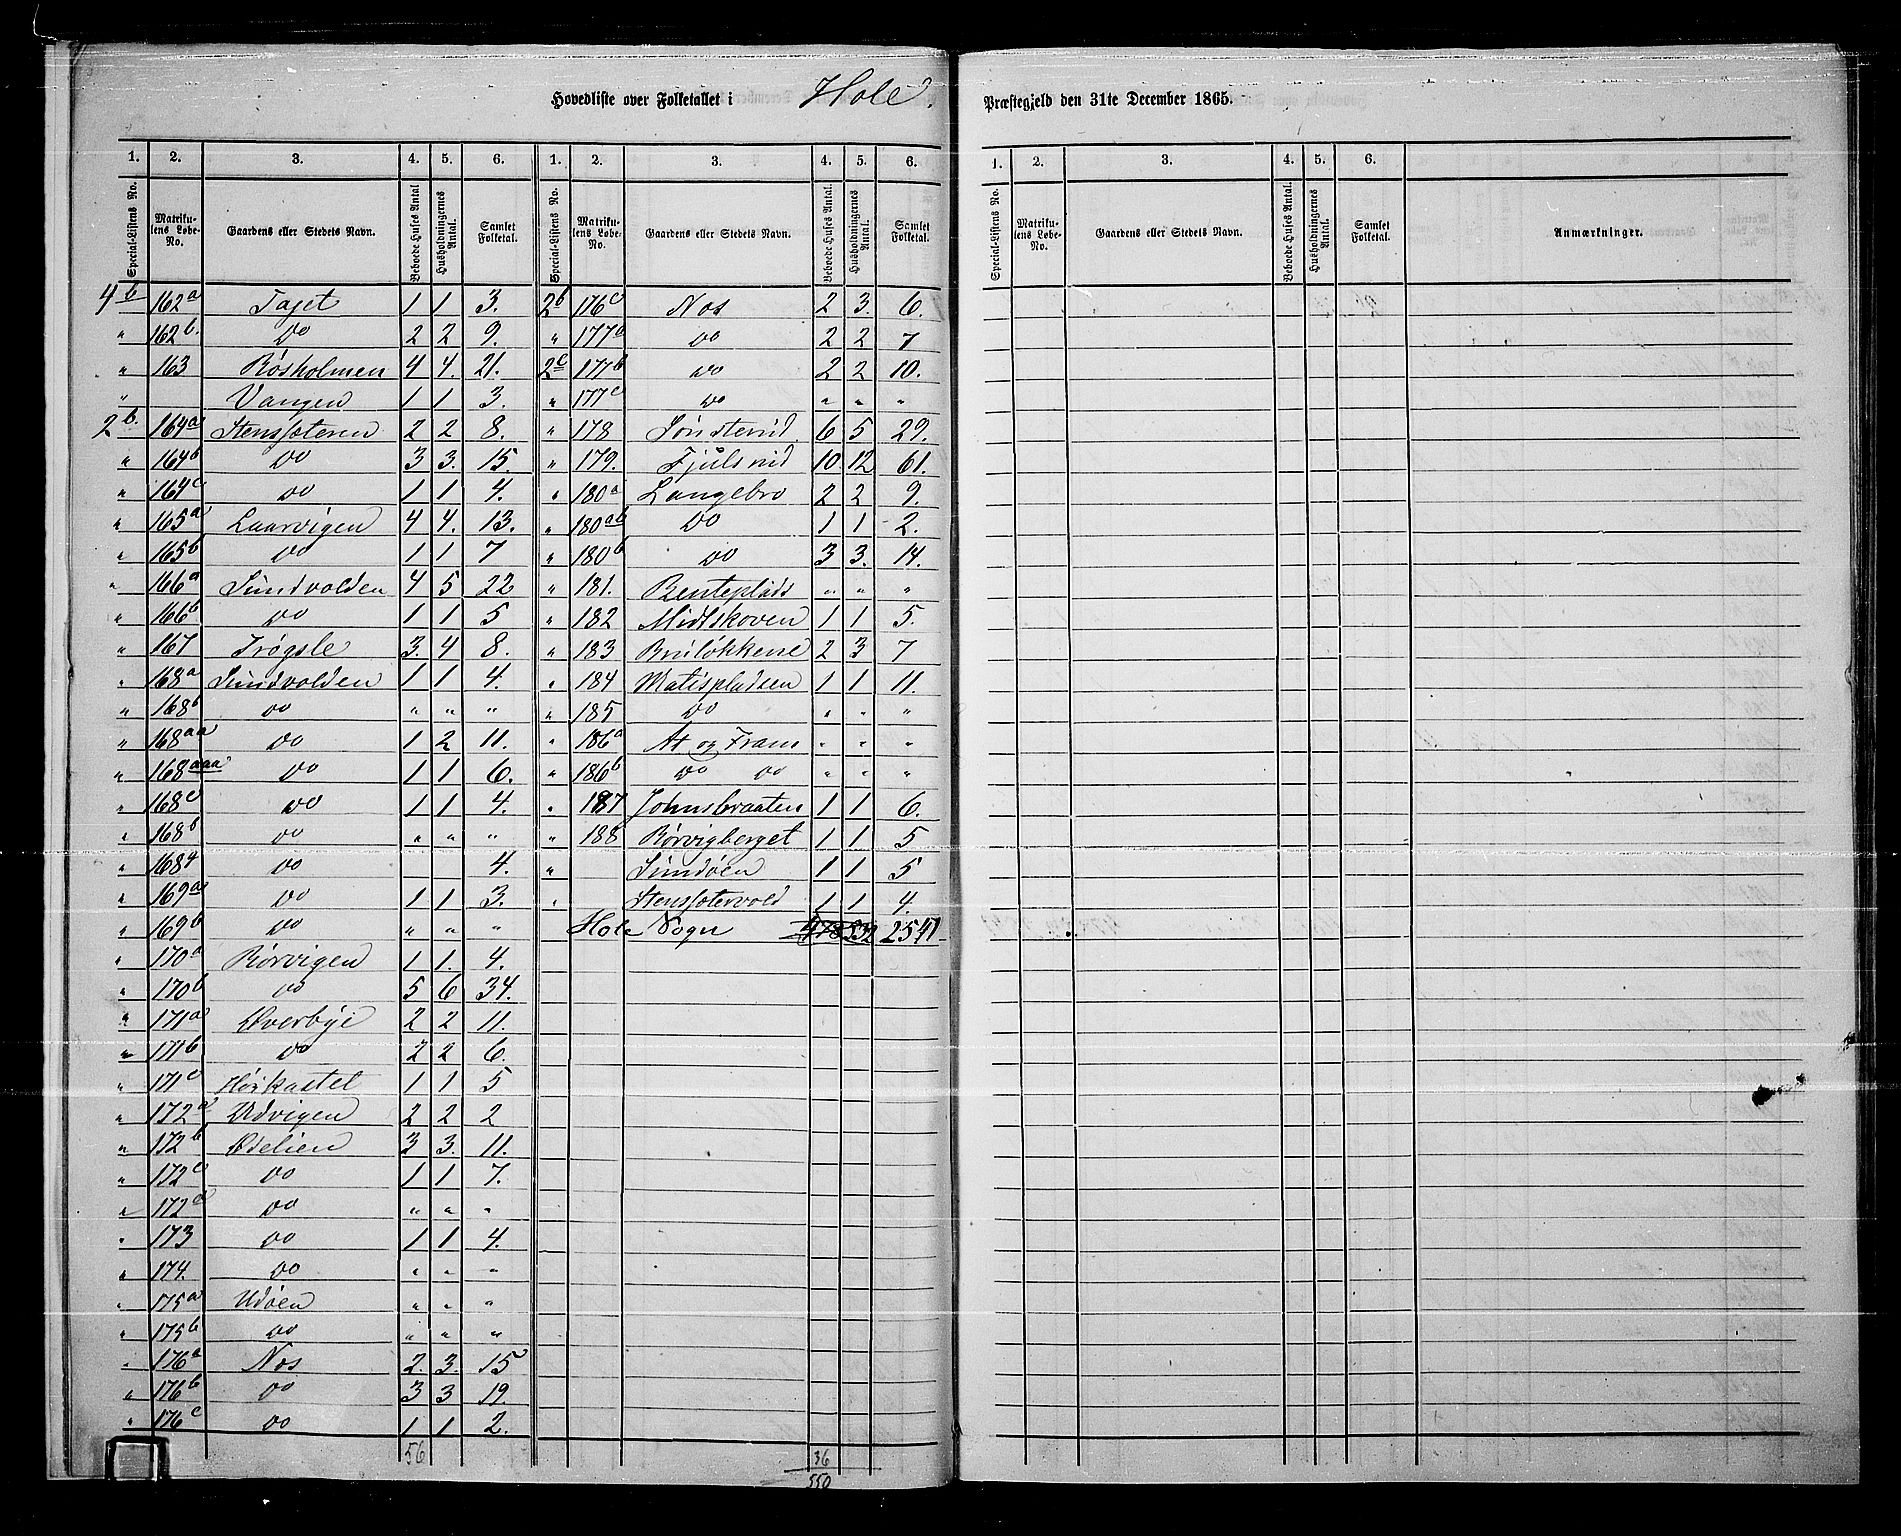 Hovedliste over Folketallet i Hole Præstegjeld den 31te December 1865.
1. 2. 3. 4. 5. 6. 1. 2. 3. 4. 5. 6.
Special-Listens No. Matrikulens Løbe-No. Gaardens eller Stedets Navn. Beboede Huses Antal Husholdningernes Antal. Samlet Folketal. Special-Listens No. Matrikulens Løbe-No. Gaardens eller Stedets Navn. Beboede Huses Antal. Husholdningernes Antal. Samlet Folketal.
4b 162a Tajet 1 1 3. 2b 176c Nos 2 3. 6.
" 162b. do 2 2 9. " 177a do 2 2 7
" 163 Røsholmen 4 4. 21. 2c 177b do 2 2 10.
" Vangen 1 1 3. " 177c do " " "
2b. 164a Stenssæteren 2 2 8. " 178 Sønsterud. 6 5 29.
" 164b do 3 3. 15. " 179. Fjulsrud 10. 12 61.
" 164c do 1 1 4. " 180a Langebro 2 2 9.
" 165a Laarvigen 4 4. 13. " 180ab do 1 1 2.
" 165b do 1 1 7 " 180b do 3 3. 14.
" 166a Sundvolden 4 5 22 " 181. Benteplads " " "
" 166b do 1 1 5 " 182 Midtskoven 1 1 5.
" 167 Trøgsle 3. 4 8. " 183 Bruløkkene 2 3 7
" 168a Sundvolden 1 1 4. " 184 Matispladsen 1 1 11.
" 168b do " " " " 185 do " " "
" 168aa do 1 2 11. " 186a At og Fram " " "
" 168aaa do 1 1 6. " 186b do do " " "
" 168c do 1 1 4. " 187 Johnsbraaten 1 1 6.
" 168b do " " " " 188 Rørvigberget 1 1 5
" 168d do 4. " Sundøen 1 1 5
" 169a do 1 1 3. " Stenssætervold 1 1 4.
" 169b do " " " Hole Sogn 478 532 2541
" 170a Rørvigen 1 1. 4.
" 170b do 5 6 34.
" 171a Øverbye 2 2 11.
" 171b do 2 2 6.
" 171c Hørkastet 1 1 5
" 172a Udvigen 2 2 2
" 172b Ødelien 3 3. 11.
" 172c do 1 1 7.
" 172d do " " "
" 173 do 1 1 4.
" 174. do " " "
" 175a Udøen " " "
" 175b do " " "
" 176a Nos 2. 3. 15
" 176b do 3 3 19.
" 176c do 1 1 2.
56 36
550
1. 2. 3. 4. 5. 6.
Special-Listens No. Matrikulens Løbe-No. Gaardens eller Stedets Navn. Beboede Huses Antal. Husholdningernes Antal. Samlet Folketal. Anmærkninger.